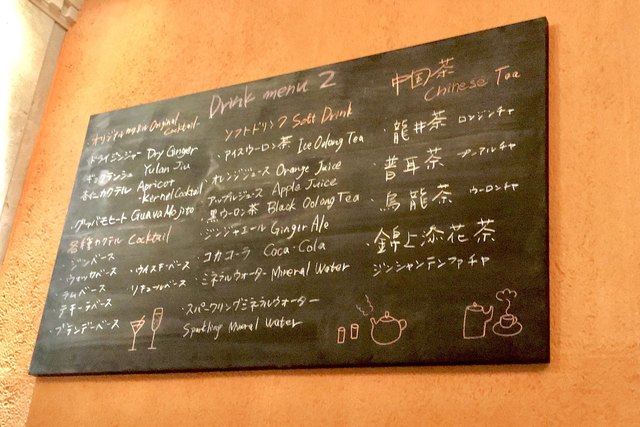 Drink menu 2
オリジナルカクテル Original Cocktail
ドライジンジャー Dry Ginger
Yulan Jiu
杏仁カクテル Apricot
Kernel Cocktail
グァバモヒート Guava Mojito
各種カクテル Cocktail
・ジンベース
・ウォッカベース ・ウイスキーベース
・ラムベース ・リキュールベース
・テキーラベース
・ブランデーベース
ソフトドリンク Soft Drink
・アイスウーロン茶 Ice Oolong Tea
・オレンジジュース Orange Juice
・アップルジュース Apple Juice
・黒ウーロン茶 Black Oolong Tea
・ジンジャエール Ginger Ale
・コカコーラ Coca・Cola
・ミネラルウォーター Mineral Water
・スパークリングミネラルウォーター
Sparkling Mineral Water
中国茶
Chinese Tea
・龍井茶 ロンジンチャ
・普耳茶 プーアルチャ
・烏龍茶 ウーロンチャ
・錦上添花茶
ジンシャンテンファチャ